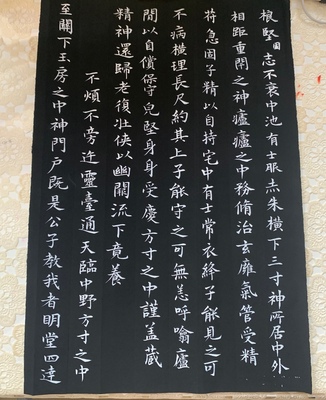 根堅固志不衰中池有士服赤朱橫下三寸神所居中外
相距重閉之神廬廬之中務脩治玄膺氣管受精
苻急固子精以自持宅中有士常衣絳子能見之可
不病橫理長尺約其上子能守之可無恙呼噏廬
間以自償保守完堅身身受慶方寸之中謹盖藏
精神還歸老復壯俠以幽闕流下竟養
不煩不旁迕靈臺通天臨中野方寸之中
至關下玉房之中神門户既是公子教我者明堂四達